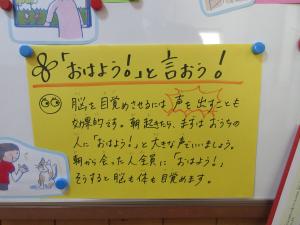 「おはよう！」と言おう！
脳を目覚めさせるには声を出すことも
効果的です。朝起きたら、まずはおうちの
人に「おはよう！」と大きな声でいいましょう。
朝から会った人全員に「おはよう！」
そうすると脳も体も目覚めます。